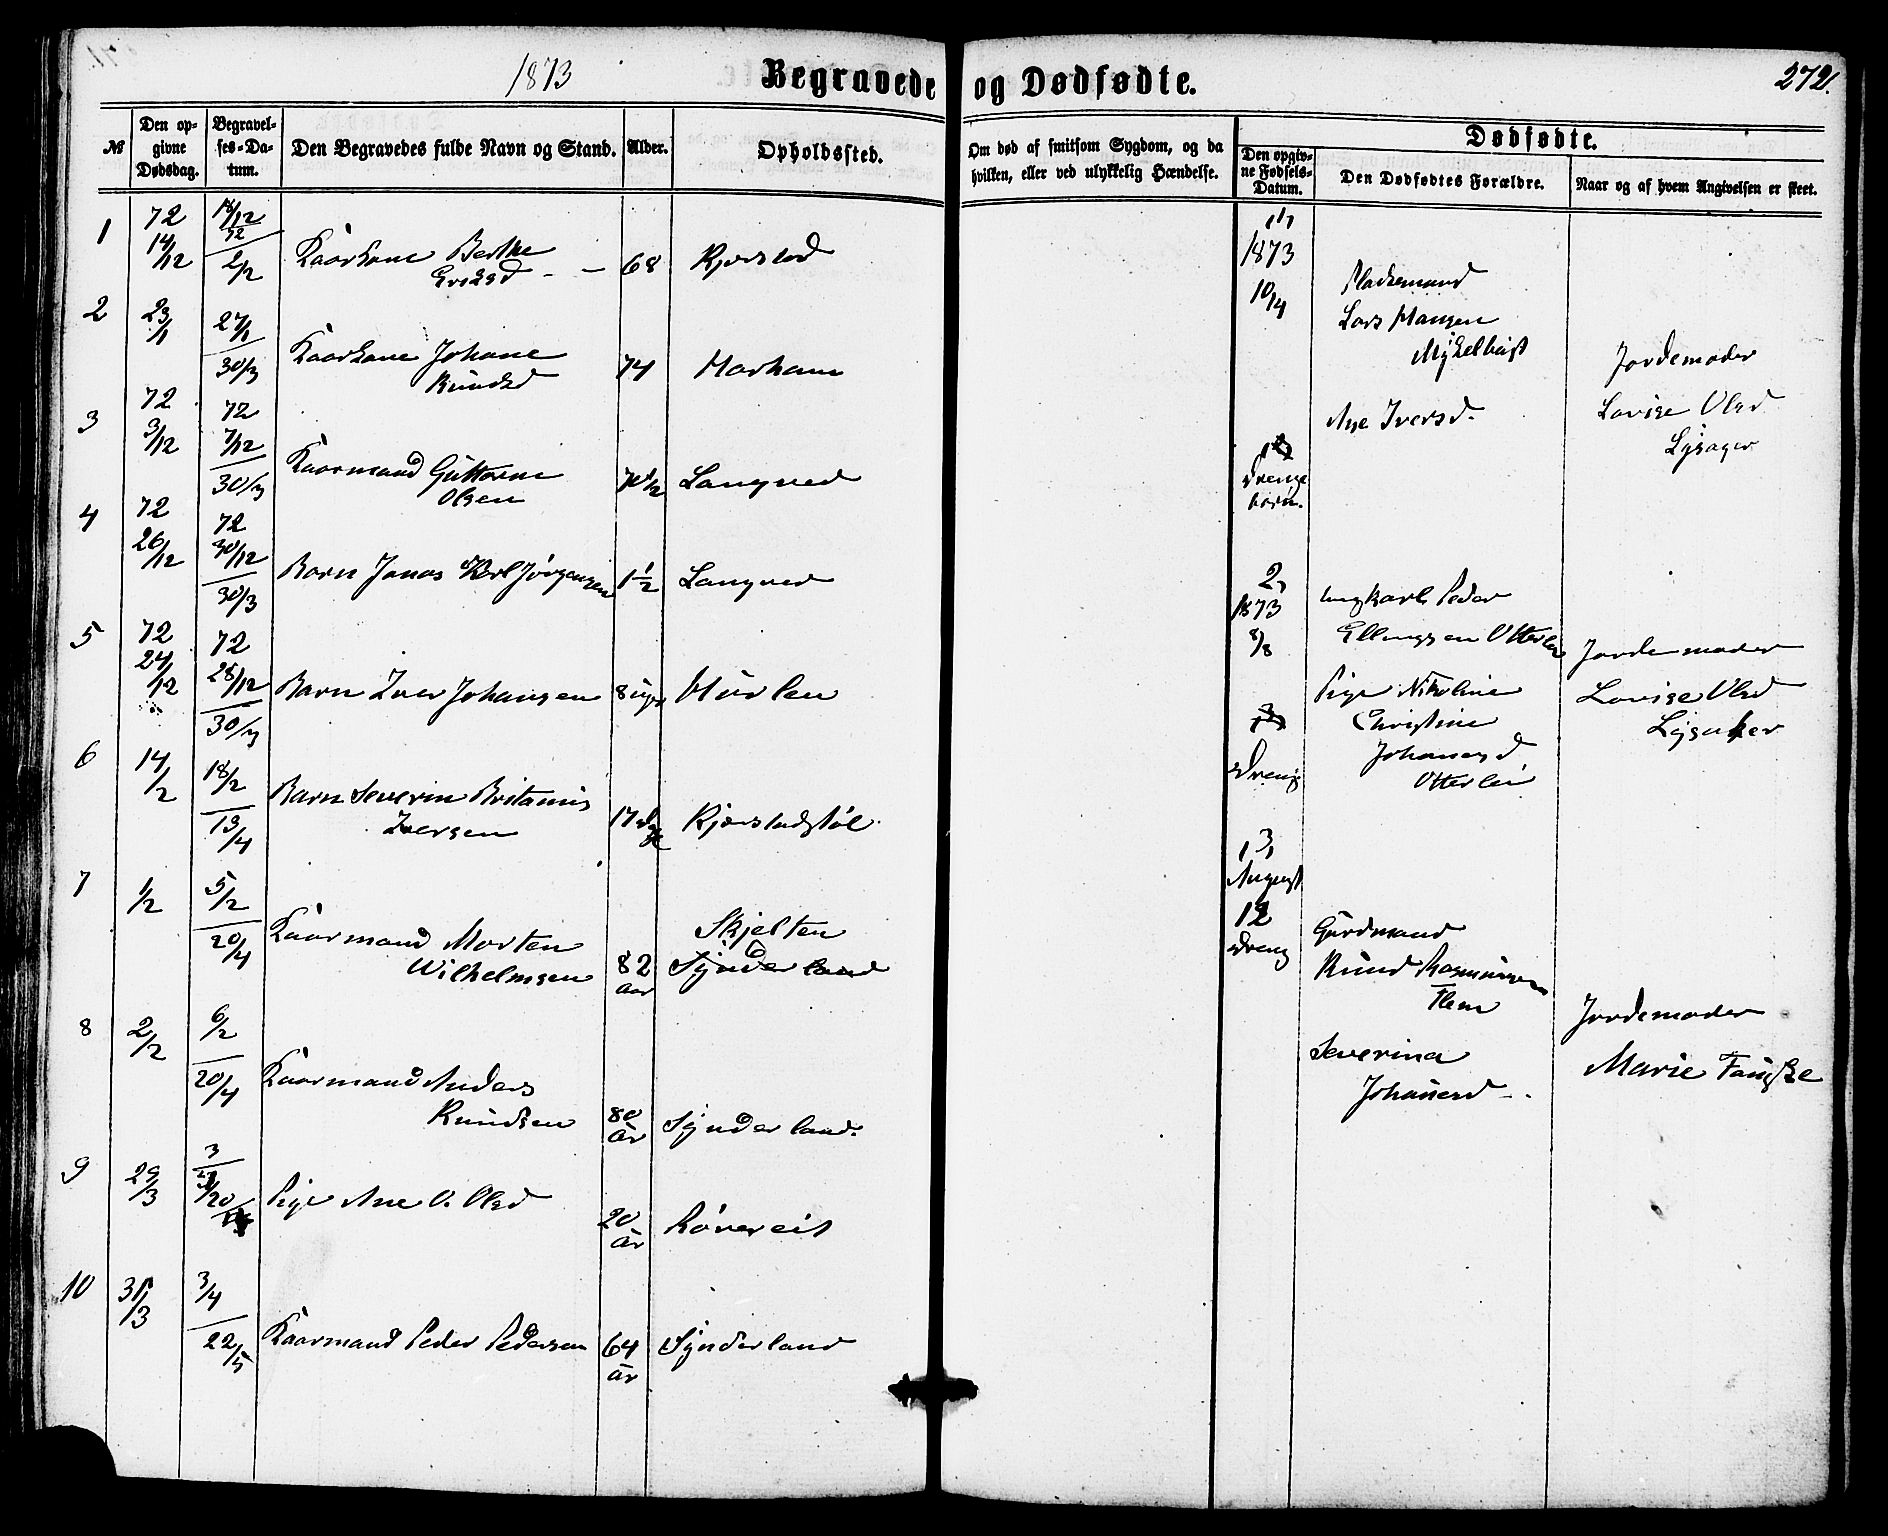 1873
Begravede og Dødfødte.
272.
№
Den opgivne Dødsdag.
Begravelses-Datum.
Den Begravedes fulde Navn og Stand.
Alder.
Opholdssted.
Om død af smitsom Sygdom, og da hvilken, eller ved ulykkelig Hændelse.
Dødfødte.
Den opgivne Fødsels-Datum.
Den Dødfødtes Forældre.
Naar og af hvem Angivelsen er skeet.
1 72 14/12 18/12 72 2/2 Kaarkone Berthe 68 Kjerstad
Eriksd - -
2 23/1 27/1 30/3 Kaarkone Johane 74 Harham
Knudsd
3 72 3/12 72 7/12 30/3 Kaarmand Guttorm 70 1/2 Langved
Olsen
4 72 26/12 72 30/12 30/3 Barn Jonas Karl Jørgensen 1 1/2 Langved
5 72 24/12 72 28/12 30/3 Barn Iver Johansen 8 ug Hurlen
6 14/2 18/2 13/4 Barn Severin Britanus 17 Kjerstadstøl
Iversen
7 1/2 5/2 20/4 Kaarmand Morten Skjelten
Wilhelmsen 82 aar Synderland
8 2/2 6/2 20/4 Kaarmand Anders
Knudsen 80 år Synderland.
9 29/3 Pige Ane O. Olsd 20 år Røvereit
10 31/3 3/4 22/5 Kaarmand Peder Pedersen 64 år Synderland
1,
1873
10/4
Drenge
barn.
Pladsemand
Lars Hansen
Myklebust
Ane Iversd.
Jordemoder
Lovise Olsd
Lysager
2,
1873
8/8
Dreng
ungkarl Peder
Ellingsen Otterlei
Pige Nikoline
Christine
Johanesd
Otterlei
Jordemoder
Lovise Olsd
Lysaker
3,
August
12
Dreng
Gårdmand
Knud Rasmussen
Flem
Severina
Johanesd - .
Jordemoder
Marie Fauske